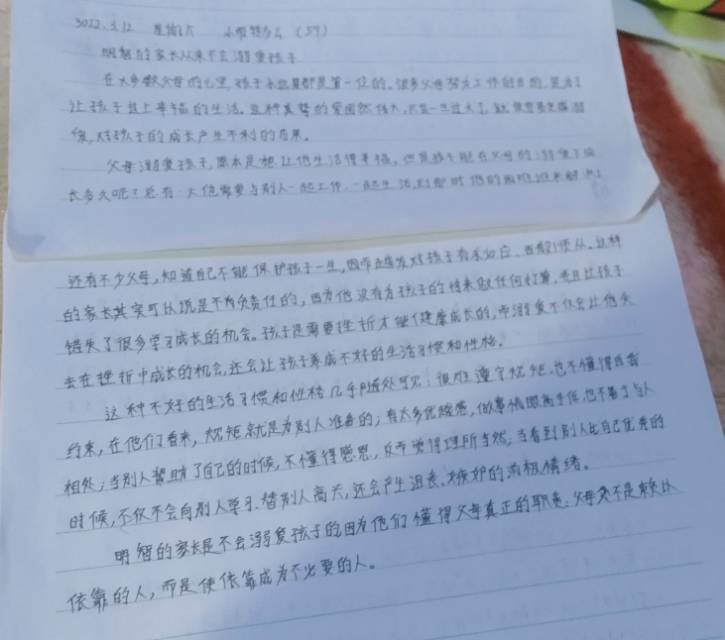 3022.3.12 星期六 (59)
明智的家长从来不会溺爱孩子
在大多数父母的心里,孩子永远都是第一位的。很多父母努力工作的目的,是为了
让孩子过上幸福的生活。这种真挚的爱固然伟大,只是一旦过火了,就很容易变成溺
爱,对孩子的成长产生不利的后果。
父母溺爱孩子,原本是想让他生活得幸福,但是孩子能在父母的溺爱下成
长多久呢?总有一天他需要与别人一起工作、一起生活,到那时他的困难谁来解决?
还有不少父母,知道自己不能保护孩子一生,因而有求必应、百般依从。这样
的家长其实可以说是不负责任的,因为他没有为孩子的将来做任何打算,并且让孩子
错失了很多学习成长的机会。孩子是需要挫折才能健康成长的,而溺爱不仅会让他失
去在挫折中成长的机会,还会让孩子养成不好的生活习惯和性格。
这种不好的生活习惯和性格几乎随处可见:很难遵守规矩,也不懂得自我
约束,在他们看来,规矩就是为别人准备的;有太多优越感,做事情眼高手低,也不善于与人
相处;当别人帮助了自己的时候,不懂得感恩,反而觉得理所当然;当看到别人比自己优秀的
时候,不仅不会向别人学习、替别人高兴,还会产生沮丧、嫉妒的消极情绪。
明智的家长是不会溺爱孩子的,因为他们懂得父母真正的职责:父母并不是赖以
依靠的人,而是使依靠成为不必要的人。